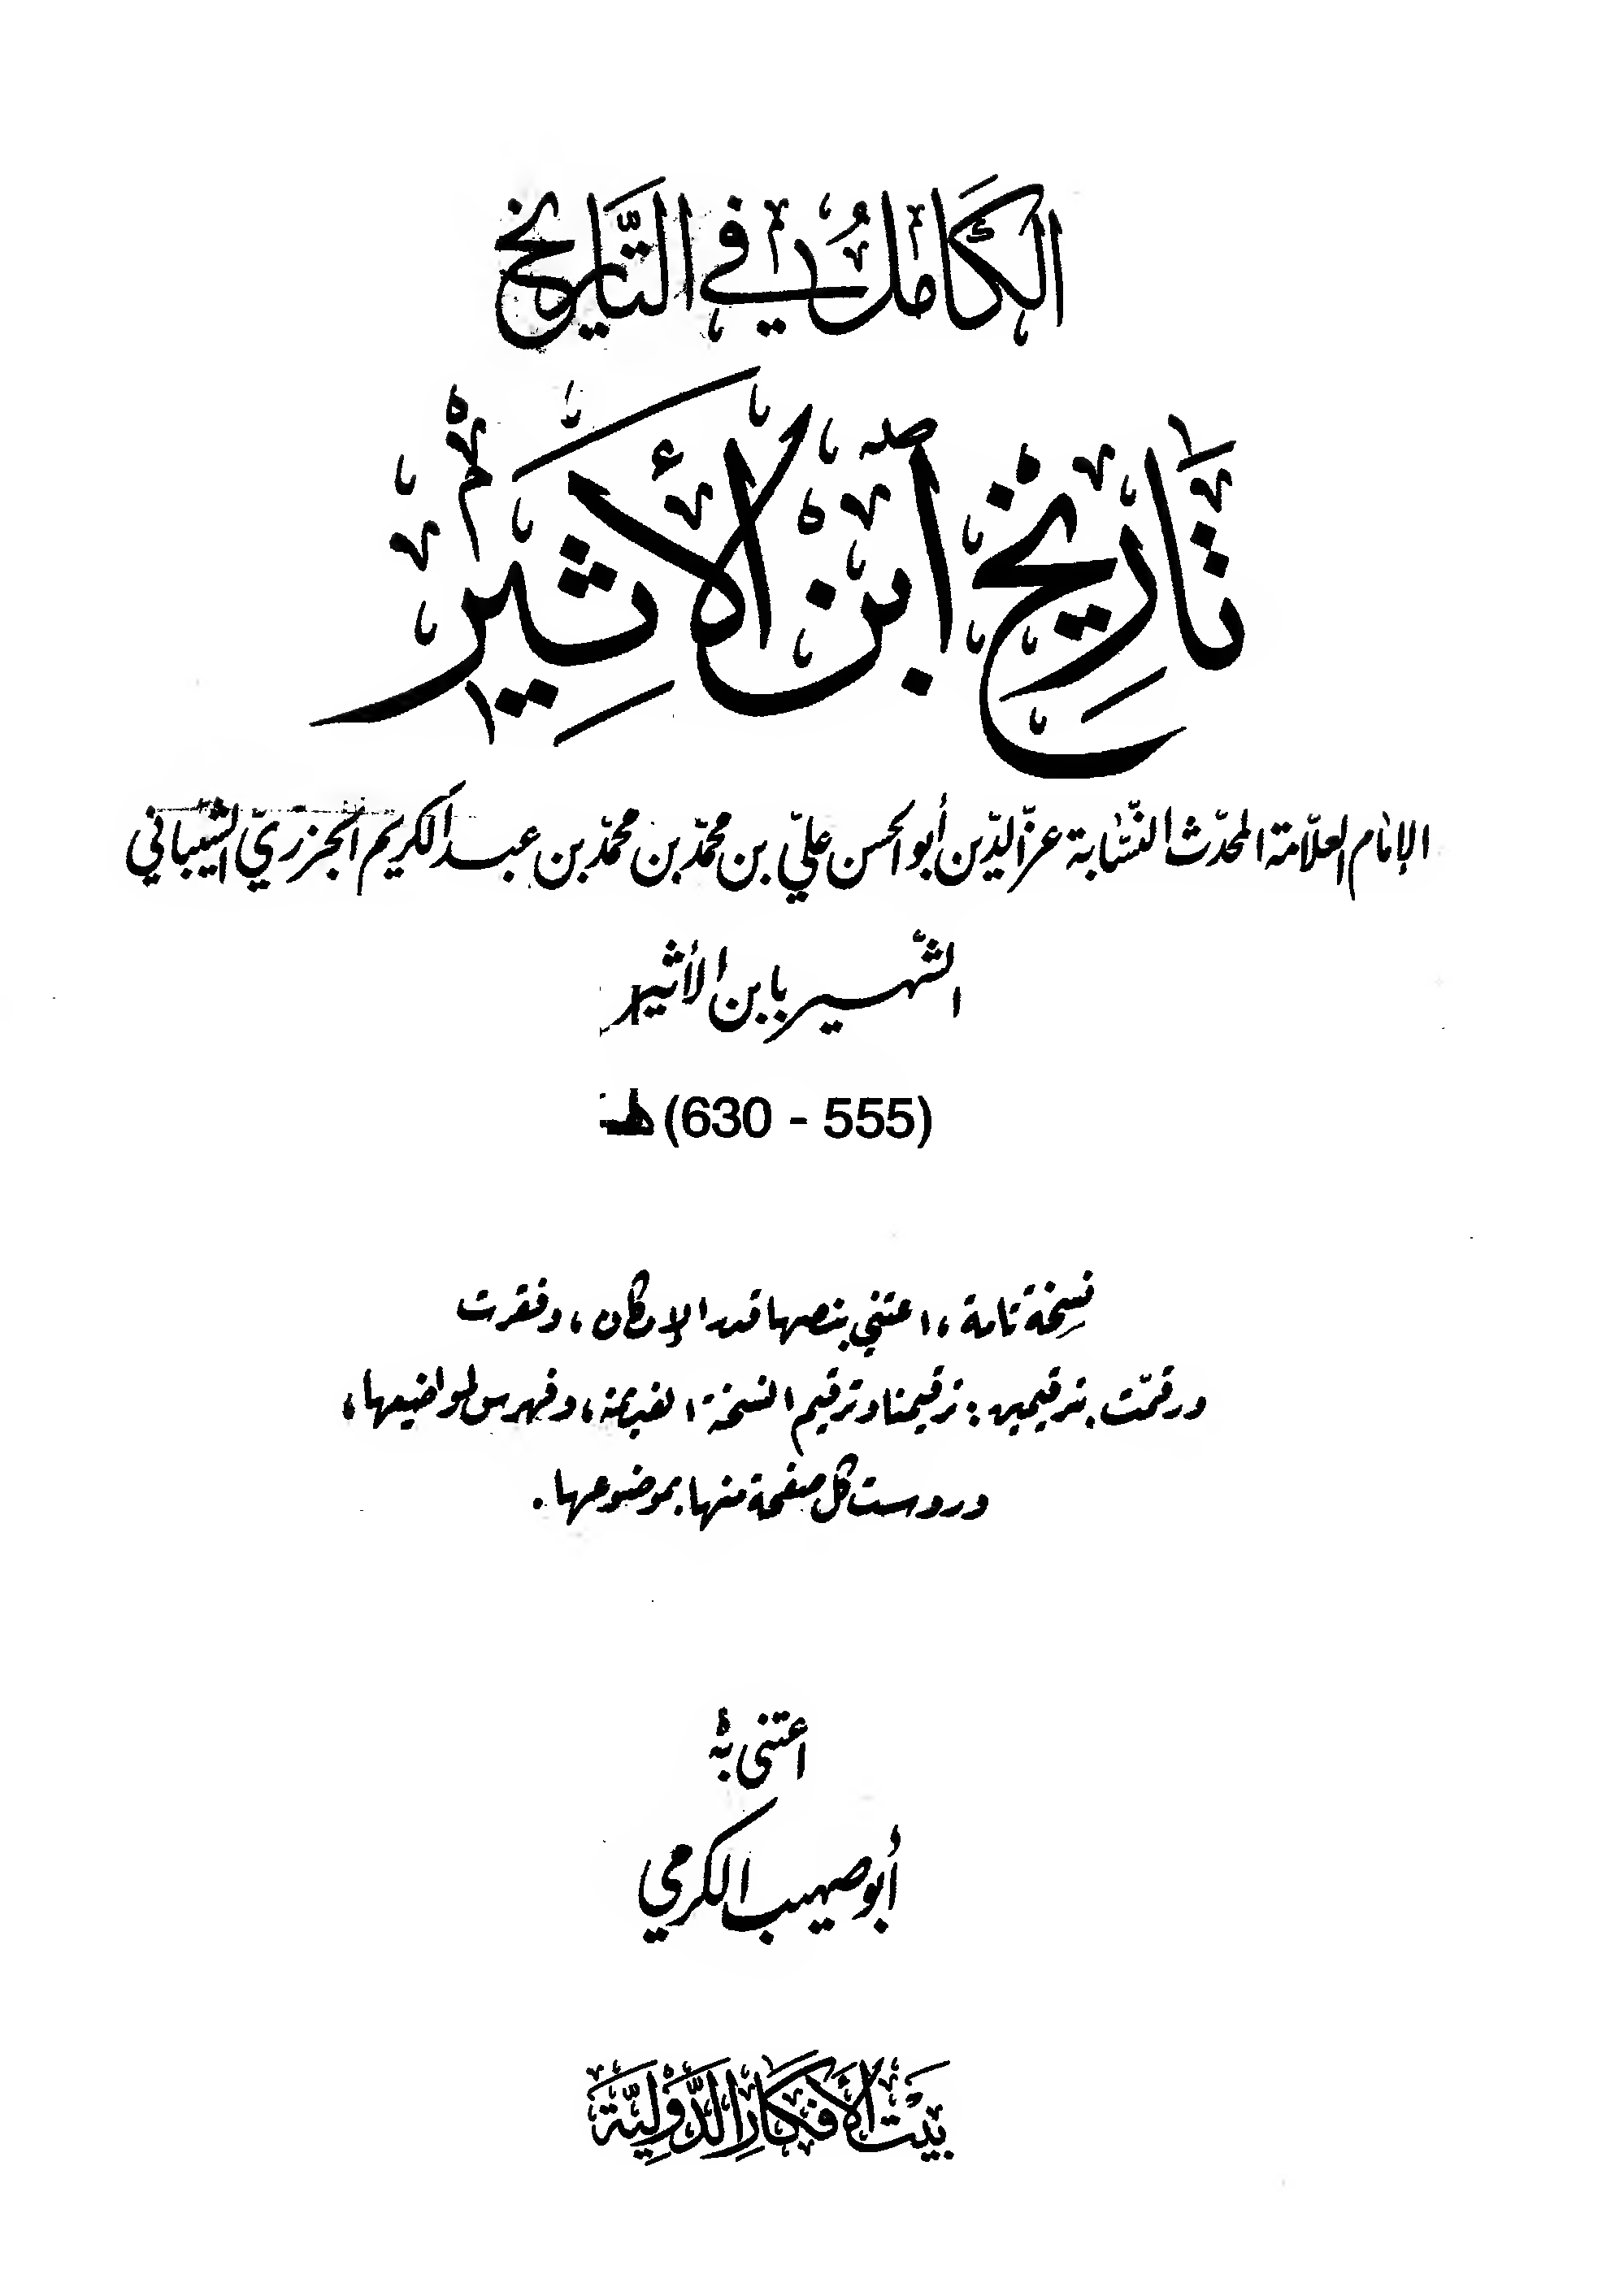 الكامل في التاريخ
تاريخ ابن الأثير
الإمام العلّامة المحدّث النسّابة عزّ الدّين أبو الحسن عليّ بن محمّد بن محمّد بن عبد الكريم الجزريّ الشيّباني
الشّهير بابن الأثير
(555 - 630) هـ
نسخة تامة، اعتني بنصها قدر الإمكان، وفقرت
ورقمّت بترقيمين: ترقيمنا وترقيم النسخة القديمة، وفهرس لمواضيعها،
وروست كل صفحة منها بموضوعها.
اعتنى به
أبو صهيب الكرمي
بيت الأفكار الدولية